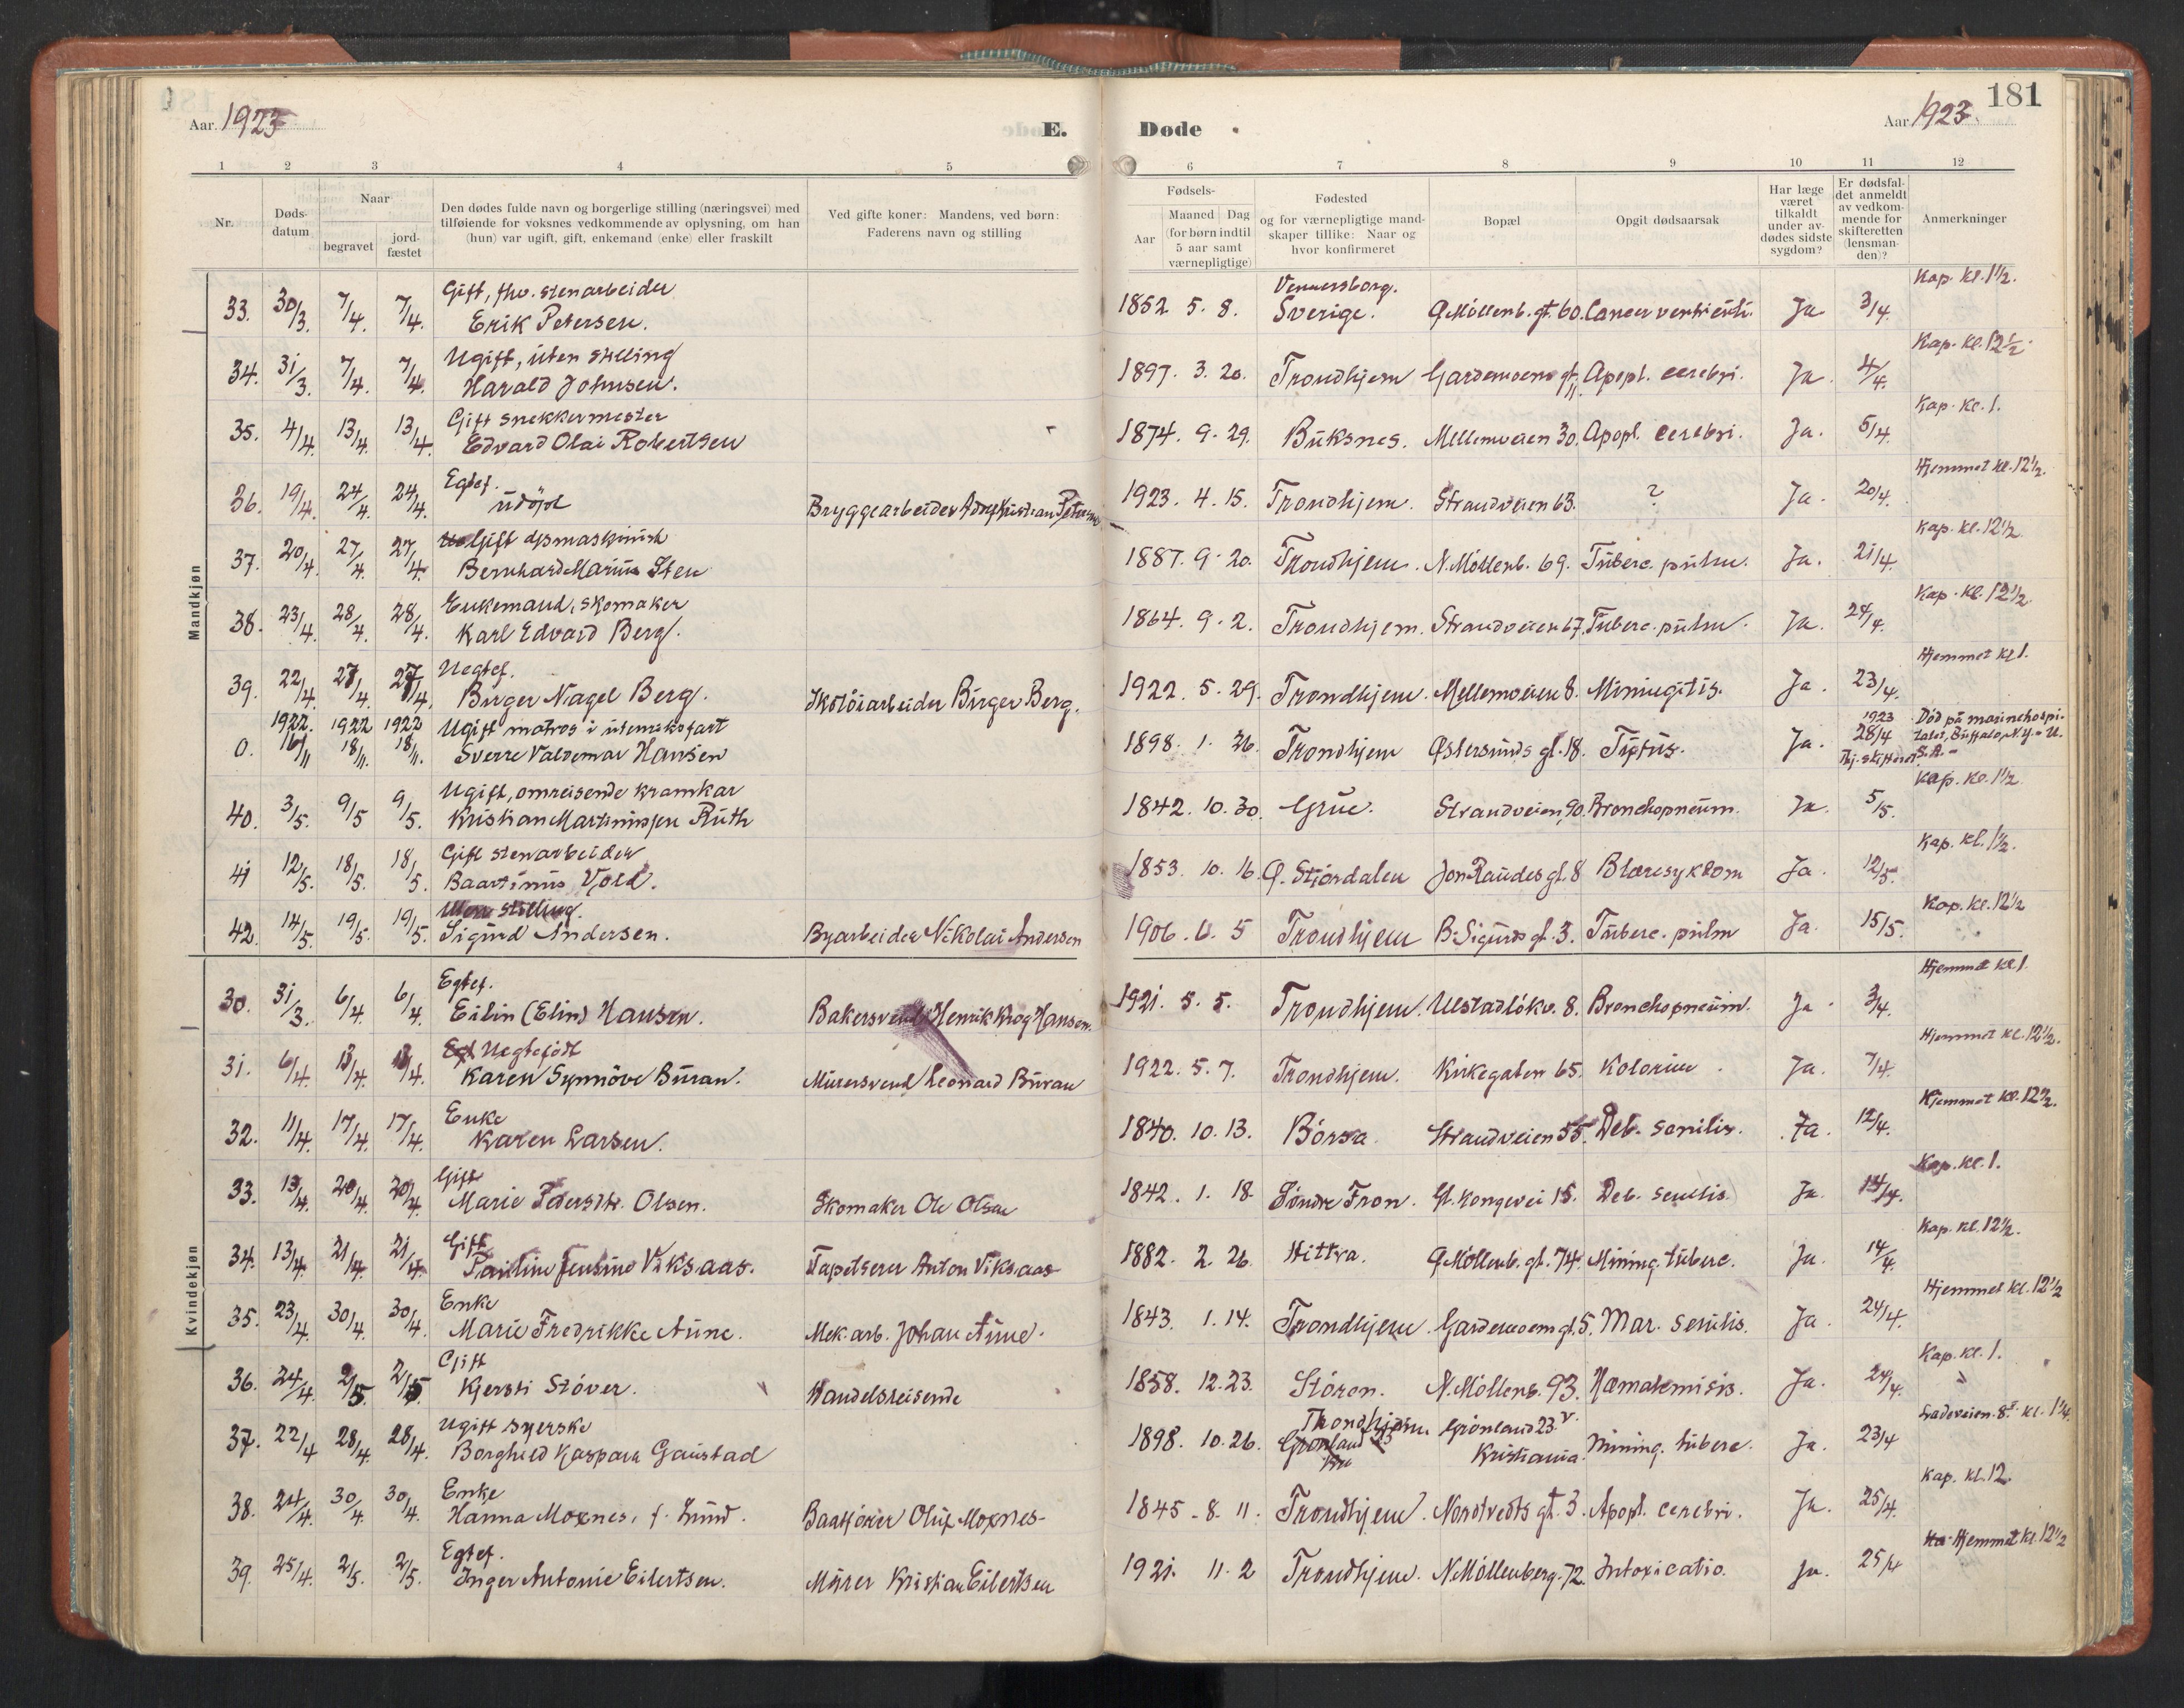 181
Aar 1923
E. Døde
Aar 1923.
1 2 3 4 5 6 7 8 9 10 11 12
Nr.
Døds-
datum
Naar
begravet
jord-
fæstet
Den dødes fulde navn og borgerlige stilling (næringsvei) med
tilføiende for voksnes vedkommende av oplysning, om han
(hun) var ugift, gift, enkemand (enke) eller fraskilt
Ved gifte koner: Mandens, ved børn:
Faderens navn og stilling
Fødsels-
Aar
Maaned Dag
(for børn indtil
5 aar samt
værnepligtige)
Fødested
og for værnepligtige mand-
skaper tillike: Naar og
hvor konfirmeret
Bopæl
Opgit dødsaarsak
Har læge
været
tilkaldt
under av-
dødes sidste
sygdom?
Er dødsfal-
det anmeldt
av vedkom-
mende for
skifteretten
(lensman-
den)?
Anmerkninger
Mandkjøn
Gift, fhv. stenarbeider Vennersborg. Kap. kl. 1½.
33. 30/3. 7/4. 7/4. Erik Petersen. 1852 5. 8. Sverige. Ø. Möllenb. gt. 60. Cancer ventriculi. Ja 3/4.
Ugift, uten stilling Kap. kl. 12½.
34. 31/3. 7/4. 7/4. Harald Johnsen. 1897. 3. 20. Trondhjem Gardemoens gt. 11 Apopl. cerebri. Ja. 4/4.
Gift snekkermester Kap. kl. 1.
35. 4/4. 13/4. 13/4. Edvard Olai Robertsen 1874. 9. 29. Buksnes. Mellemveien 30. Apopl. cerebri. Ja. 5/4.
Egtef. Hjemmet kl. 12½.
36. 19/4. 24/4. 24/4. udöpt Bryggearbeider Kristian Petersen 1923. 4. 15. Trondhjem. Strandveien 63. ? Ja. 20/4.
Gift dpsmaskinist Kap. kl. 12½
37. 20/4. 27/4. 27/4. Bernhard Marius Sten 1887. 9. 20. Trondhjem. N. Möllenb. 69. Tuberc. pulm. Ja. 21/4.
Enkemand, skomaker Kap. kl. 12½
38. 23/4. 28/4. 28/4. Karl Edvard Berg. 1864. 9. 2. Trondhjem. Strandveien 67. Tuberc. pulm. Ja. 24/4.
Uegtef. Hjemmet kl 1.
39. 22/4. 27/4. 27/4. Birger Nagel Berg. Skotöiarbeider Birger Berg. 1922. 5. 29. Trondhjem. Mellemveien 8. Miningitis. Ja. 23/4.
1922. 1922 1922 Ugift matros i utenriksfart 1923 Död på marinehospi-
0. 16/11 18/11. 18/11. Sverre Valdemar Hansen 1898. 1. 26. Trondhjem Østersunds gt. 18. Tyfus. Ja. 28/4 talet, Buffalo, N.Y. - U.
Thj. skifteret S.A. -
Ugift, omreisende kramkar Kap. kl. 1½
40. 3/5. 9/5 9/5. Kristian Martinussen Ruth 1842. 10. 30. Grue. Strandveien 90. Bronchopneum. Ja. 5/5.
Gift stenarbeider Kap. kl. 1½.
41 12/5. 18/5. 18/5. Baartinus Vold. 1853. 10. 16. Ø. Stjördalen Jon Raudes gt. 8 Blæresykdom Ja. 12/5.
Uten stilling. Kap. kl. 12½
42. 14/5. 19/5. 19/5. Sigurd Andersen. Byarbeider Nikolai Andersen 1906. 6. 5 Trondhjem B. Sigurds gt. 3. Tuberc. pulm Ja. 15/5.
Kvindekjøn
Egtef. Hjemmet kl. 1.
30. 31/3. 6/4. 6/4. Eilin (Elin) Hansen. Bakersvend Henrik Krog Hansen. 1921. 5. 5. Trondhjem. Ulstadlökv. 8. Bronchopneum. Ja. 3/4.
Uegtefödt Hjemmet kl. 12½.
31. 6/4. 13/4. 13/4. Karen Synnöve Buran. Murersvend Leonard Buran 1922. 5. 7. Trondhjem. Kirkegaten 65. Kolorine. Ja. 7/4.
Enke Hjemmet kl. 12½.
32. 11/4. 17/4. 17/4. Karen Larsen. 1840. 10. 13. Börsa. Strandveien 55. Deb. senilis. Ja. 12/4.
Gift Kap. kl. 1.
33. 13/4. 20/4. 20/4. Marie Pedersdtr. Olsen. Skomaker Ole Olsen 1842. 1. 18. Söndre Fron. Gl. kongevei 15. Deb. senilis Ja. 14/4.
Gift Kap. kl. 12½.
34. 13/4. 21/4. 21/4. Pauline Jensine Viksaas. Tapetserer Anton Viksaas 1882. 2. 26. Hittra. Ø. Möllenb. gt. 74. Mining. tuberc. Ja. 14/4.
Enke Hjemmet kl. 12½
35. 23/4. 30/4. 30/4. Marie Fredrikke Aune. Mek. arb. Johan Aune. 1843. 1. 14. Trondhjem. Gardemoens gt. 5. Mar. senilis. Ja. 24/4.
Gift Kap. kl. 1.
36. 24/4. 2/5. 2/5 Kjersti Stöver. Handelsreisende 1858. 12. 23. Stören. N. Möllenb. 93. Hæmatemisis. Ja. 24/4.
Ugift syerske Trondhjem Grönland 23 V. Ladeveien 8 kl. 1¼
37. 22/4 28/4. 28/4. Borghild Kaspara Gaustad 1898. 10. 26. Grönland 23 Kristiania. Mining. tuberc. Ja. 23/4
Enke Kap. kl. 12.
38. 24/4. 30/4. 30/4. Hanna Moxnes, f. Lund. Baatförer Oluf Moxnes 1845. 8. 11. Trondhjem. Nordtvedts gt. 3. Apopl. cerebri. Ja. 25/4.
Egtef. Hjemmet kl. 12½
39. 25/4. 2/5. 2/5. Inger Antonie Eilertsen. Murer Kristian Eilertsen 1921. 11. 2 Trondhjem. N. Möllenberg. 72. Intoxicatio. Ja. 25/4